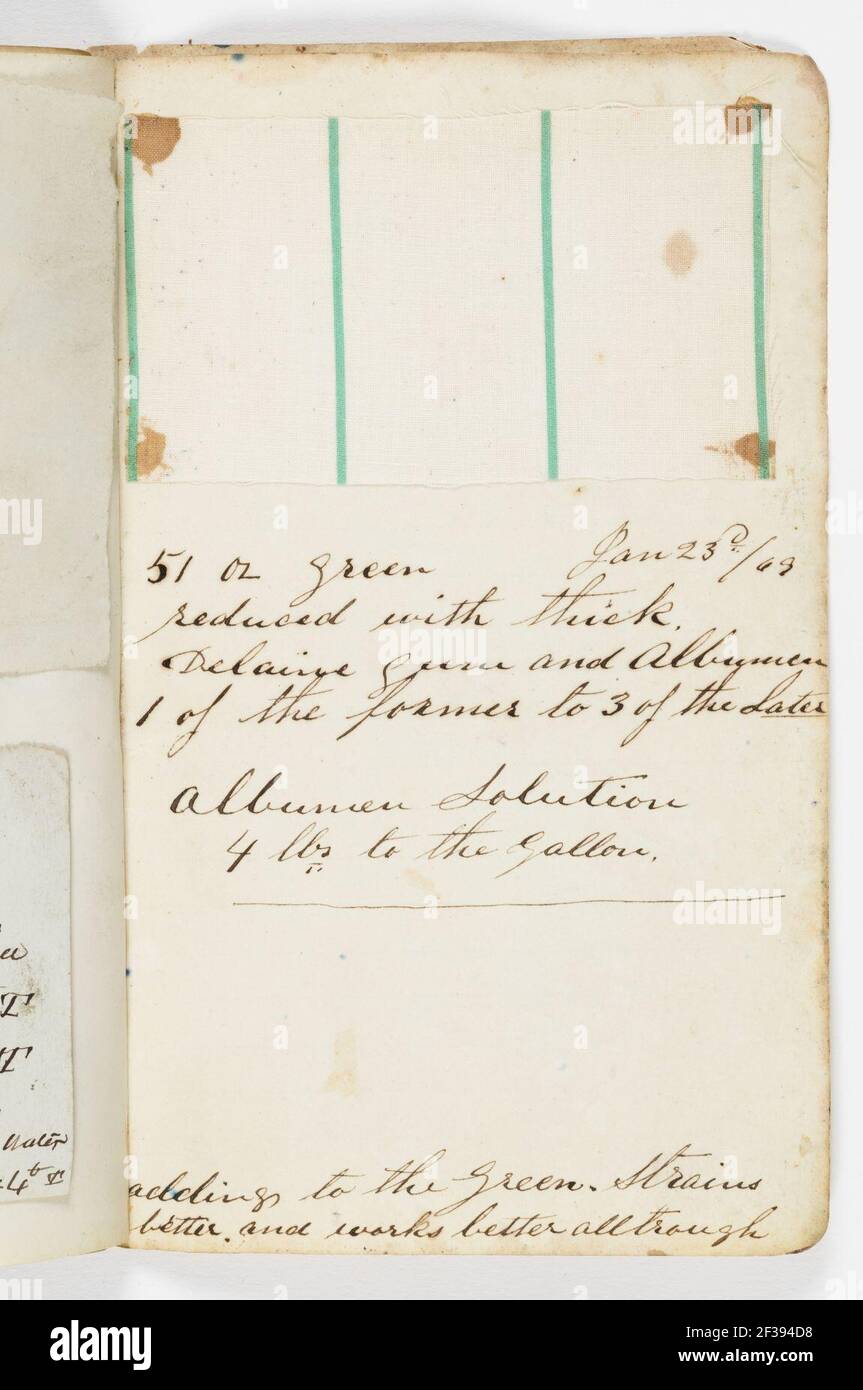 51 oz green Jan 23d/63
reduced with thick.
Delaine gum and Albumen
1 of the former to 3 of the Later
Albumen Solution
4 lbs to the Gallon.
addings to the Green. Strains
better. and works better all trough
Water
4
alamy
Image ID: 2F394D8
www.alamy.com